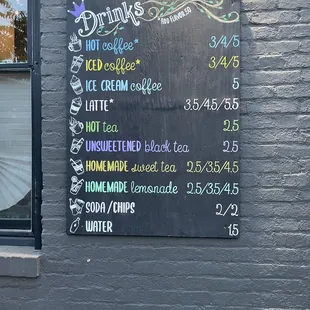 Drinks
* ADD FLAVOR .50
HOT coffee* 3/4/5
ICED coffee* 3/4/5
ICE CREAM coffee 5
LATTE* 3.5/4.5/5.5
HOT tea 2.5
UNSWEETENED black tea 2.5
HOMEMADE sweet tea 2.5/3.5/4.5
HOMEMADE lemonade 2.5/3.5/4.5
SODA/CHIPS 2/2
WATER 1.5